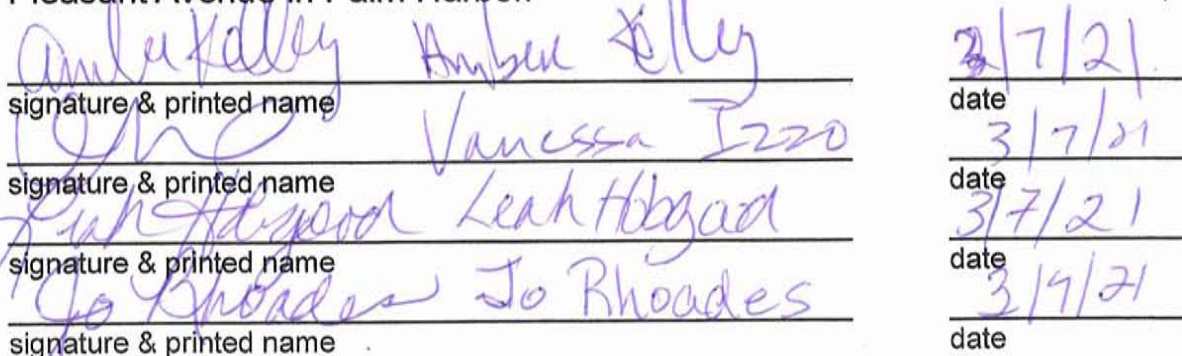 Amber Kelley Amber Kelley 3/7/21
signature & printed name date
Vanessa Izzo 3/7/21
signature & printed name date
Leah Hobgood Leah Hobgood 3/7/21
signature & printed name date
Jo Rhoades Jo Rhoades 3/9/21
signature & printed name date